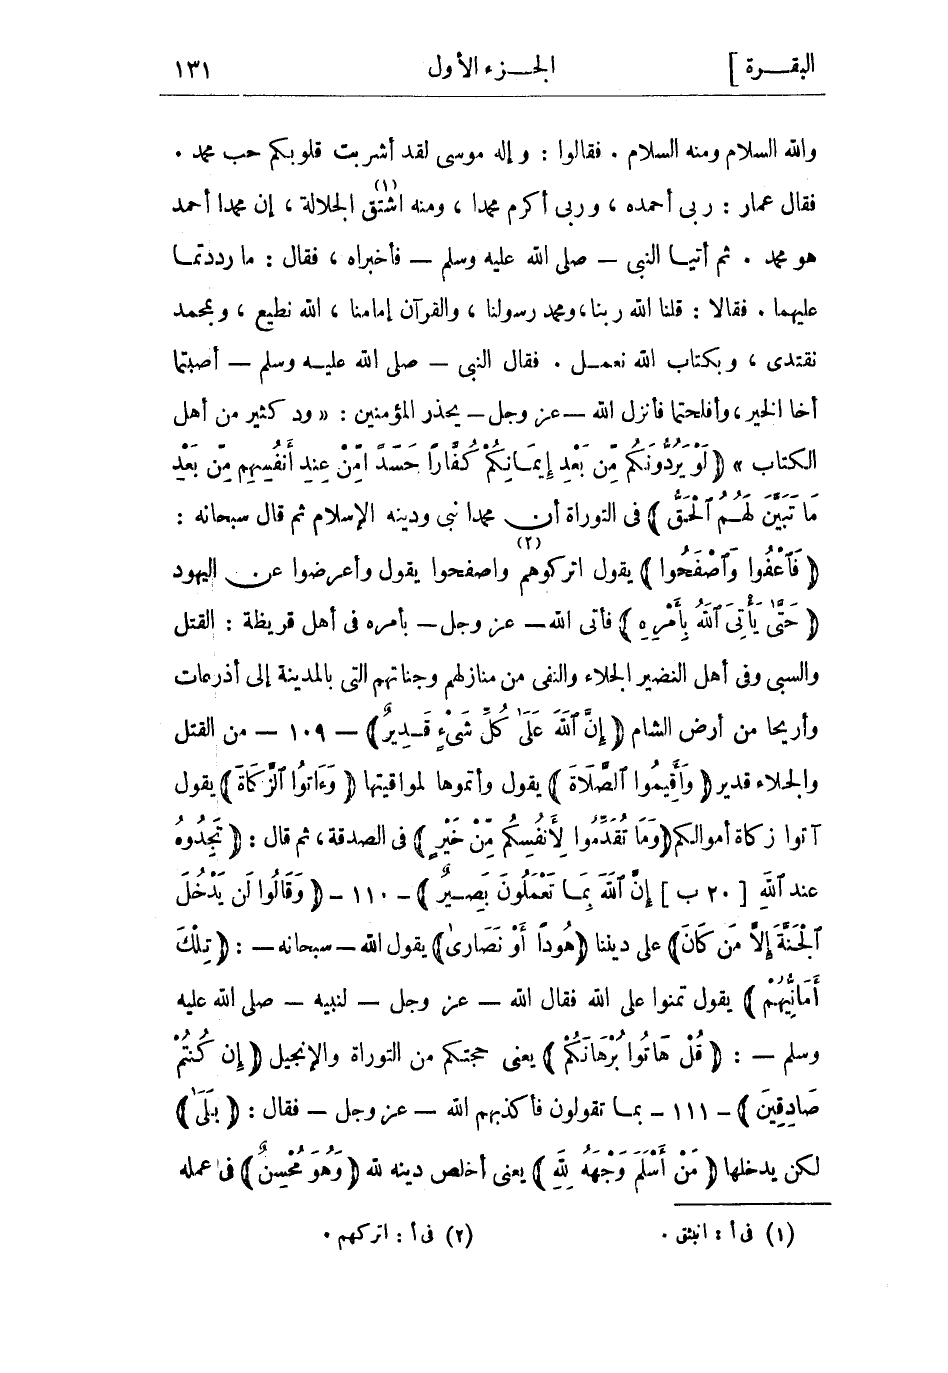 البقـــرة ]
الجـــزء الأول
١٣١
والله السلام ومنه السلام . فقالوا : وإله موسى لقد أشربت قلوبكم حب محمد .
فقال عمار : ربى أحمده ، وربى أكرم محمدا ، ومنه اشتق (١) الجلالة ، إن محمدا أحمد
هو محمد . ثم أتيـا النبى — صلى الله عليه وسلم — فأخبراه ، فقال : ما رددتمـا
عليهما . فقالا : قلنا الله ربنا،ومحمد رسولنا ، والقرآن إمامنا ، الله نطيع ، وبمحمد
نقتدى ، وبكتاب الله نعمـل . فقال النبى — صلى الله عليـه وسلم — أصبتما
أخا الخير،وأفلحتما فأنزل الله —عز وجل— يحذر المؤمنين : « ود كثير من أهل
الكتاب » ﴿ لَوْ يَرُدُّونَكُم مِّن بَعْدِ إِيمَـانِكُمْ كُفَّارًا حَسَدًا مِّنْ عِندِ أَنفُسِهِم مِّن بَعْدِ
مَا تَبَيَّنَ لَهُـمُ ٱلْحَقُّ ﴾ فى التوراة أن محمدا نبى ودينه الإسلام ثم قال سبحانه :
﴿ فَٱعْفُوا وَٱصْفَحُوا ﴾ يقول اتركوهم (٢) واصفحوا يقول وأعرضوا عن اليهود
﴿ حَتَّىٰ يَأْتِىَ ٱللَّهُ بِأَمْرِهِ ﴾ فأتى الله— عز وجل— بأمره فى أهل قريظة : القتل
والسبى وفى أهل النضير الجلاء والنفى من منازلهم وجناتهم التى بالمدينة إلى أذرعات
وأريحا من أرض الشام ﴿ إِنَّ ٱللَّهَ عَلَىٰ كُلِّ شَىْءٍ قَـدِيرٌ ﴾ — ١٠٩ — من القتل
والجلاء قدير ﴿ وَأَقِيمُوا ٱلصَّلَاةَ ﴾ يقول وأتموها لمواقيتها ﴿ وَءَاتُوا ٱلزَّكَاةَ ﴾ يقول
آتوا زكاة أموالكم﴿وَمَا تُقَدِّمُوا لِأَنفُسِكُم مِّنْ خَيْرٍ ﴾ فى الصدقة ، ثم قال : ﴿ تَجِدُوهُ
عند ٱللَّهِ [ ٢٠ ب ] إِنَّ ٱللَّهَ بِمَـا تَعْمَلُونَ بَصِـيرٌ ﴾ — ١١٠ — ﴿ وَقَالُوا لَن يَدْخُلَ
ٱلْجَنَّةَ إِلاَّ مَن كَانَ﴾ على ديننا ﴿هُودًا أَوْ نَصَارىٰ﴾ يقول الله —سبحانه— : ﴿ تِلْكَ
أَمَانِيُّهُمْ ﴾ يقول تمنوا على الله فقال الله — عز وجل — لنبيه — صلى الله عليه
وسلم — : ﴿ قُلْ هَاتُوا بُرْهَانَكُمْ ﴾ يعنى حجتكم من التوراة والإنجيل ﴿ إِن كُنتُمْ
صَادِقِينَ ﴾ — ١١١ — بمـا تقولون فأكذبهم الله — عز وجل — فقال : ﴿ بَلَىٰ ﴾
لكن يدخلها ﴿ مَنْ أَسْلَمَ وَجْهَهُ لِلَّهِ ﴾ يعنى أخلص دينه لله ﴿ وَهُوَ مُحْسِنٌ ﴾ فى عمله
(١) فى أ : انبثق .
(٢) فى أ : اتركهم .